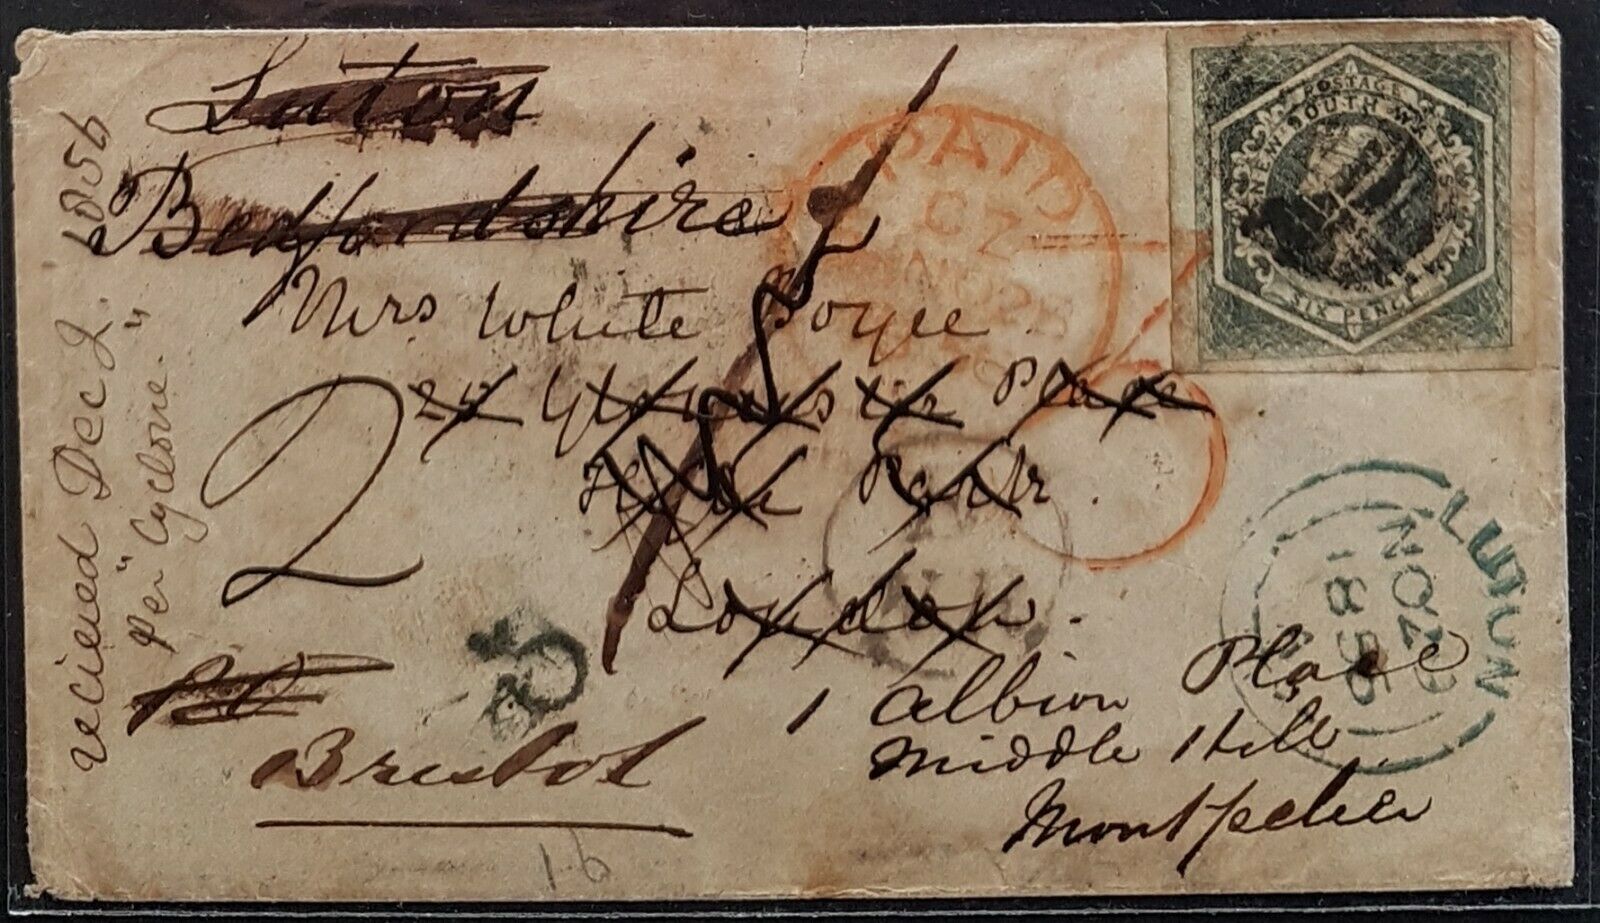 Luton
Bedfordshire
Mrs White Boyce
24 Gloucester Place
Hyde Park.
London.
1 Albion Place
Middle Hill
Montpelier
Bristol
2
1-6
recieved Dec 2. 1856
Per "Cyclone."
PAID
CZ
POSTAGE
NEW SOUTH WALES
SIX PENCE
LUTON
NO 29
1856